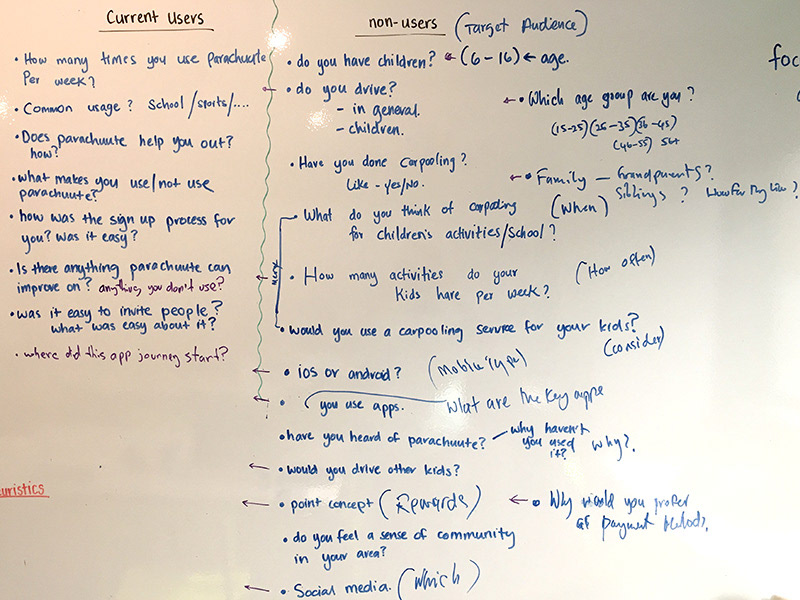 Current Users
• How many times you use parachuute
Per week?
• Common usage? School/sports/....
• Does parachuute help you out?
how?
• what makes you use/not use
parachuute?
• how was the sign up process for
you? was it easy?
• Is there anything parachuute can
improve on? anything you don't use?
• was it easy to invite people?
what was easy about it?
• where did this app journey start?
uristics
non-users (Target Audience)
• do you have children? ← (6-16) ← age.
• do you drive?
- in general.
- children.
← • Which age group are you?
(15-25) (26-35) (36-45)
(46-55) 56+
• Have you done carpooling?
Like - yes/No.
← • Family — Grandparents?
Siblings?
• What do you think of carpooling (When)
for children's activities/School?
• How many activities do your (How often)
Kids have per week?
• would you use a carpooling service for your kids?
(consider)
← • ios or android? (Mobile type)
← • you use apps. What are the key apps
• have you heard of parachuute? — why haven't
you used
it? Why?.
← • would you drive other kids?
← • point concept (Rewards)
← • Why would you prefer
payment methods.
• do you feel a sense of community
in your area?
← • Social media. (which)
foc